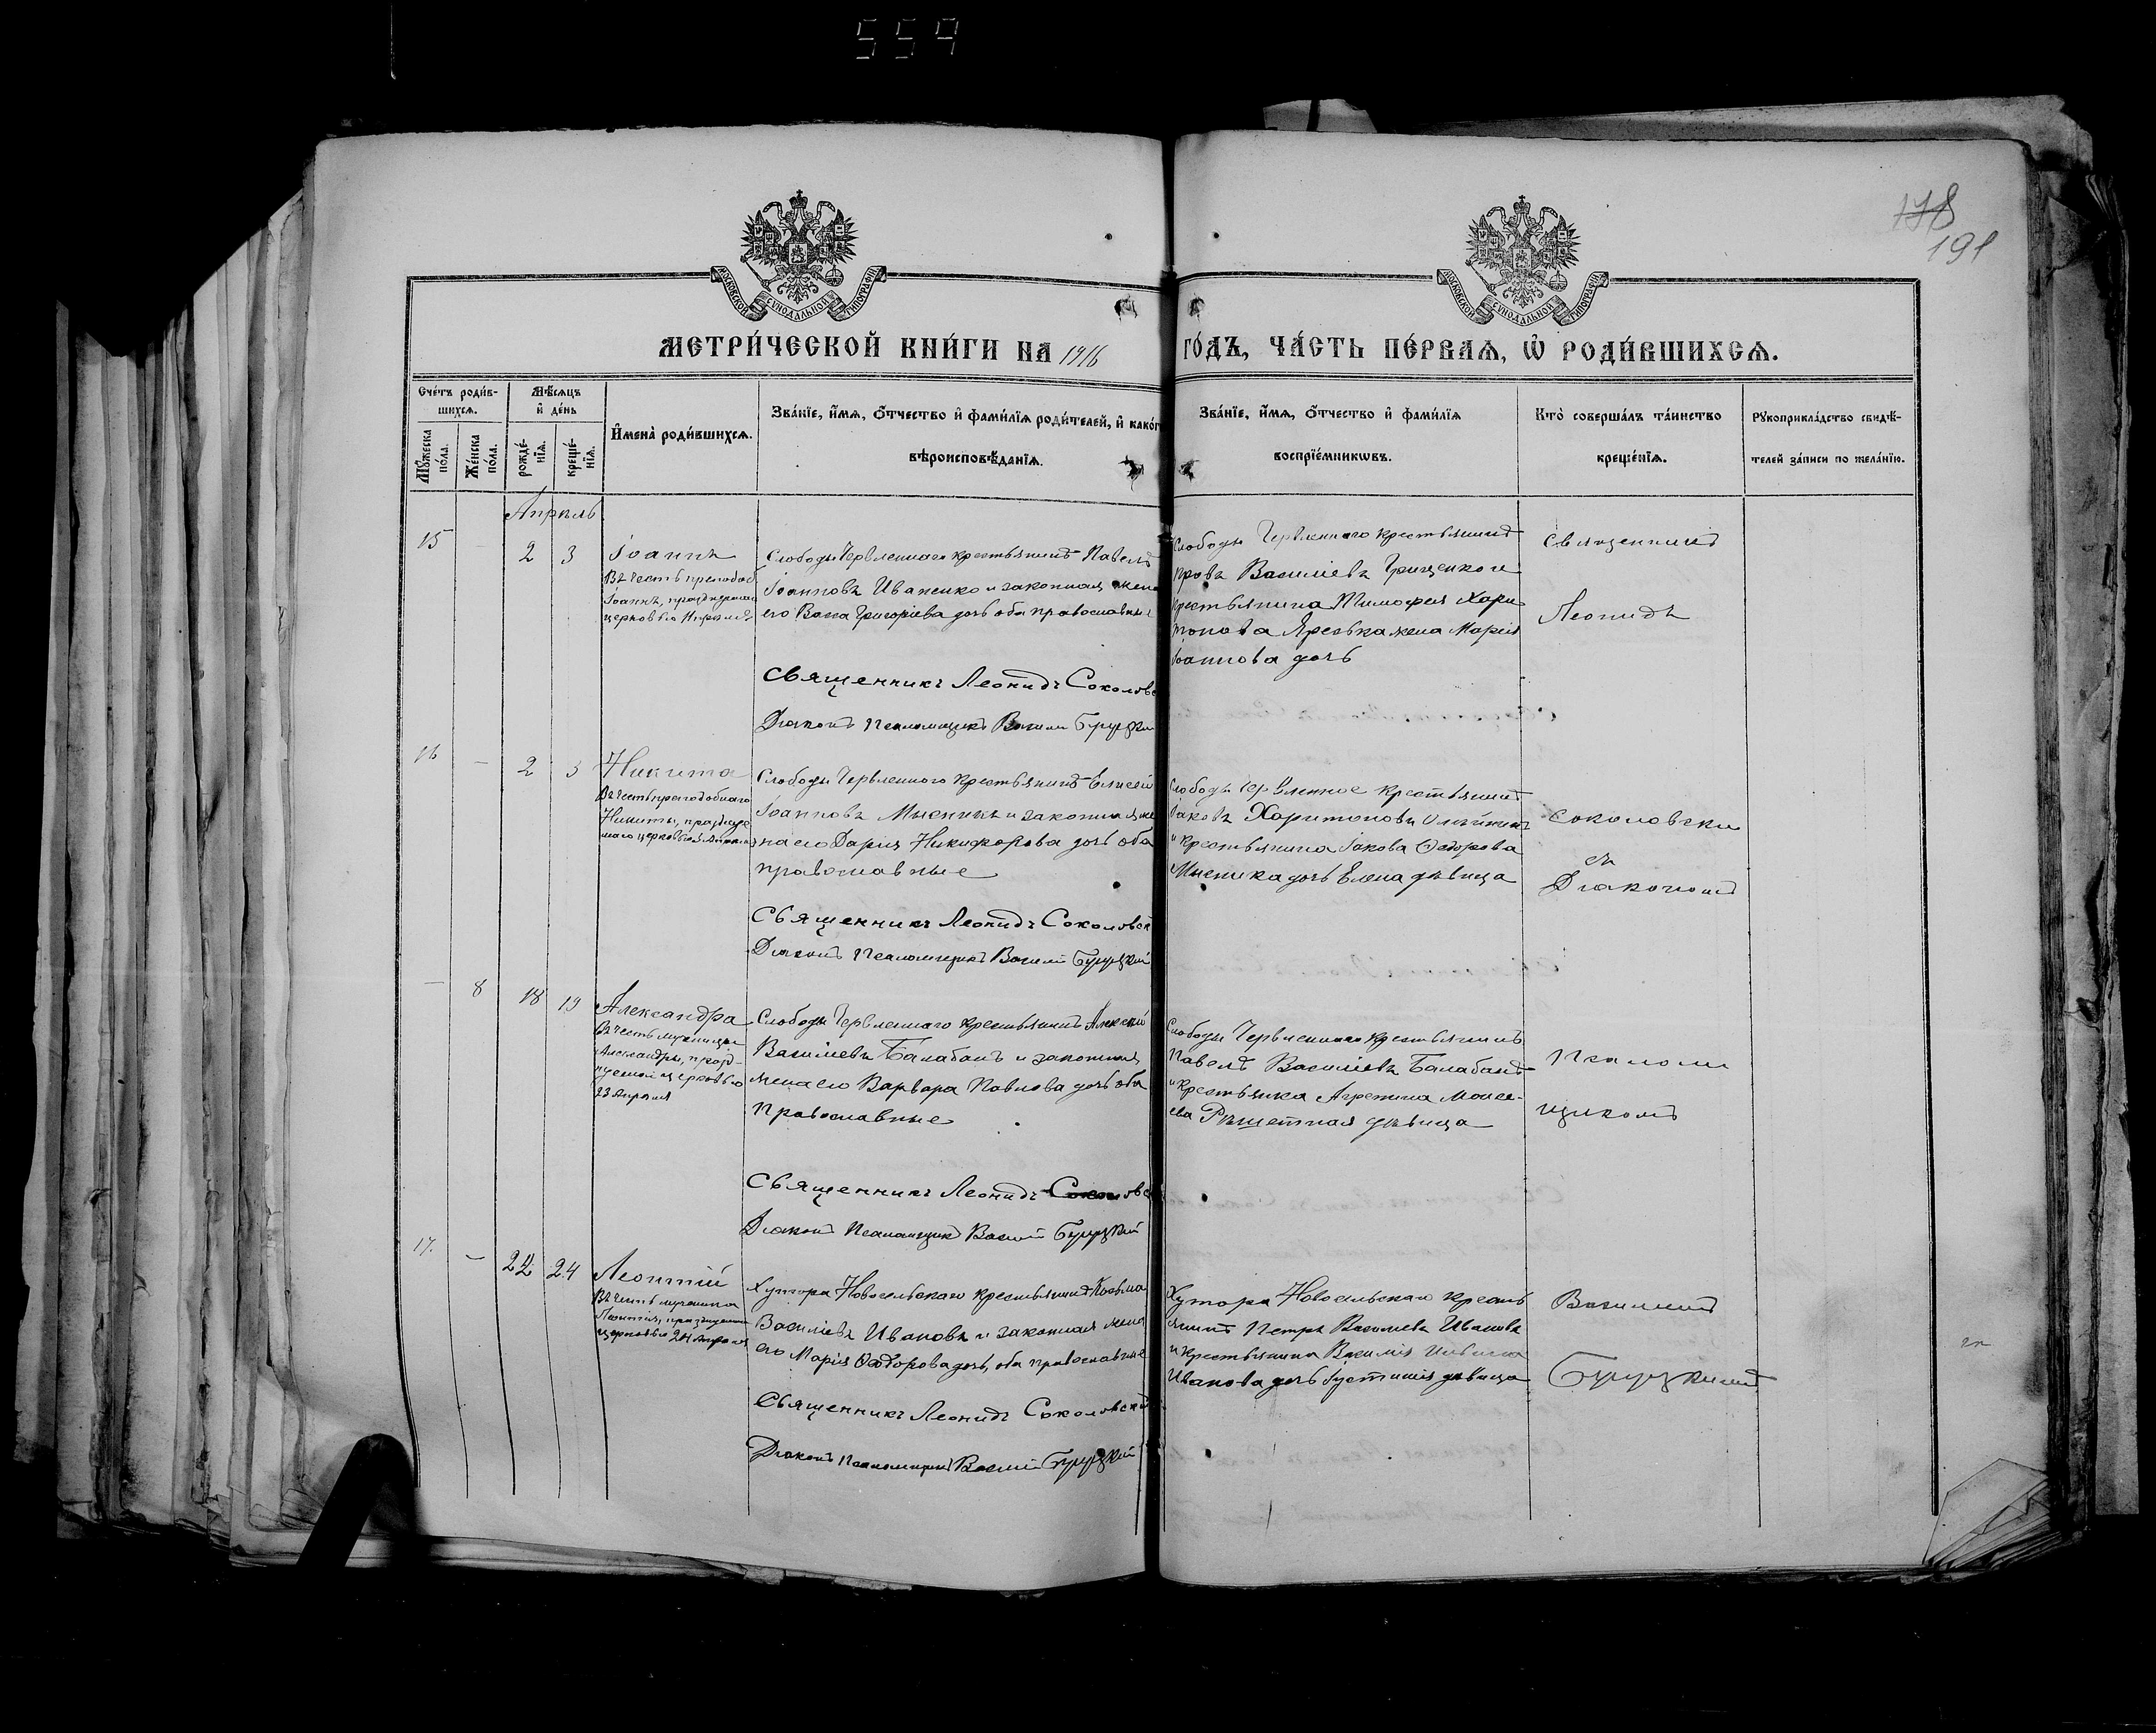 559
178
191
МОСКОВСКОЙ СѴНОДАЛЬНОЙ ТИПОГРАФІИ
МОСКОВСКОЙ СѴНОДАЛЬНОЙ ТИПОГРАФІИ
МЕТРИ́ЧЕСКОЙ КНИ́ГИ НА 1916 ГО́ДЪ, ЧА́СТЬ ПЕ́РВАѦ, Ѡ҆ РОДИ́ВШИХСѦ.
Сче́тъ роди́в-
шихсѧ.
Мꙋ́жеска по́ла.
Же́нска по́ла.
Мѣ́сѧцъ
и҆ де́нь
рожде́-
нїѧ.
креще́-
нїѧ.
И҆мена̀ роди́вшихсѧ.
Зва́нїе, и҆́мѧ, ѻ҆́тчество и҆ фамилїѧ роди́телей, и҆ како́г
вѣроисповѣ́данїѧ.
Зва́нїе, и҆́мѧ, ѻ҆́тчество и҆ фами́лїѧ
воспрїе́мникѡвъ.
Кто̀ соверша́лъ та́инство
креще́нїѧ.
Рꙋкоприкла́дство свидѣ́-
телей за́писи по жела́нїю.
Апрѣль
15
2
3
Іоаннъ
Въ честь преподоб
Іоанна, празднуемаго
церковью Апрѣля
Слободы Червленнаго крестьянинъ Павелъ
Іоанновъ Иваненко и законная жена
его Васса Григоріева дочь оба православные
Священникъ Леонидъ Соколовс
Діаконъ Псаломщикъ Василій Буруцкій
Слободы Червленнаго крестьянинъ
Василіевъ Грищенко и
крестьянина Тимофея Хари-
тонова Яреська жена Марія
Іоаннова дочь
Священникъ
Леонидъ
16
-
2
3
Никита
Въ честь преподобнаго
Никиты, праздуе
маго церковью 3 Апрѣля
Слободы Червленного крестьянинъ Елисей
Іоанновъ Мысникъ и законная же
на его Дарія Никифорова дочь оба
православные
Священникъ Леонидъ Соколовск
Діаконъ Псаломщикъ Василій Буруцкій
Слободы Червленное крестьянинъ
Іаковъ Харитоновъ
и крестьянина Іакова Ѳедорова
Мысника дочь Елена дѣвица
Соколовски
съ
Діакономъ
-
8
18
19
Александра
Въ честь мученицы
Александры, празд-
нуемой церковью
23 Апрѣля
Слободы Червленнаго крестьянинъ Алексѣй
Василіевъ Балабанъ и законная
жена его Варвара Павлова дочь оба
Православные
Священникъ Леонидъ Соколовс
Діаконъ Псаломщикъ Василій Буруцкій
Слободы Червленнаго крестьянинъ
Павелъ Василіевъ Балабанъ
и крестьянка Агрепина Моисе-
ева Рѣшетная дѣвица
Псалом
щикомъ
17.
-
22
24
Леонтій
Въ честь мученика
Леонтія, празднуемаго
церковью 24 Апрѣля
Хутора Новосельскаго крестьянинъ Косьма
Василіевъ Ивановъ и законная жена
его Марія Ѳеодорова дочь, оба православные
Священникъ Леонидъ Соколовскій
Діаконъ Псаломщикъ Василій Буруцкій
Хутора Новосельскаго кресть
янинъ Петръ Василіевъ Ивановъ
и крестьянина Василія
Иванова дочь Іустинія дѣвица
Василіемъ
Буруцкимъ